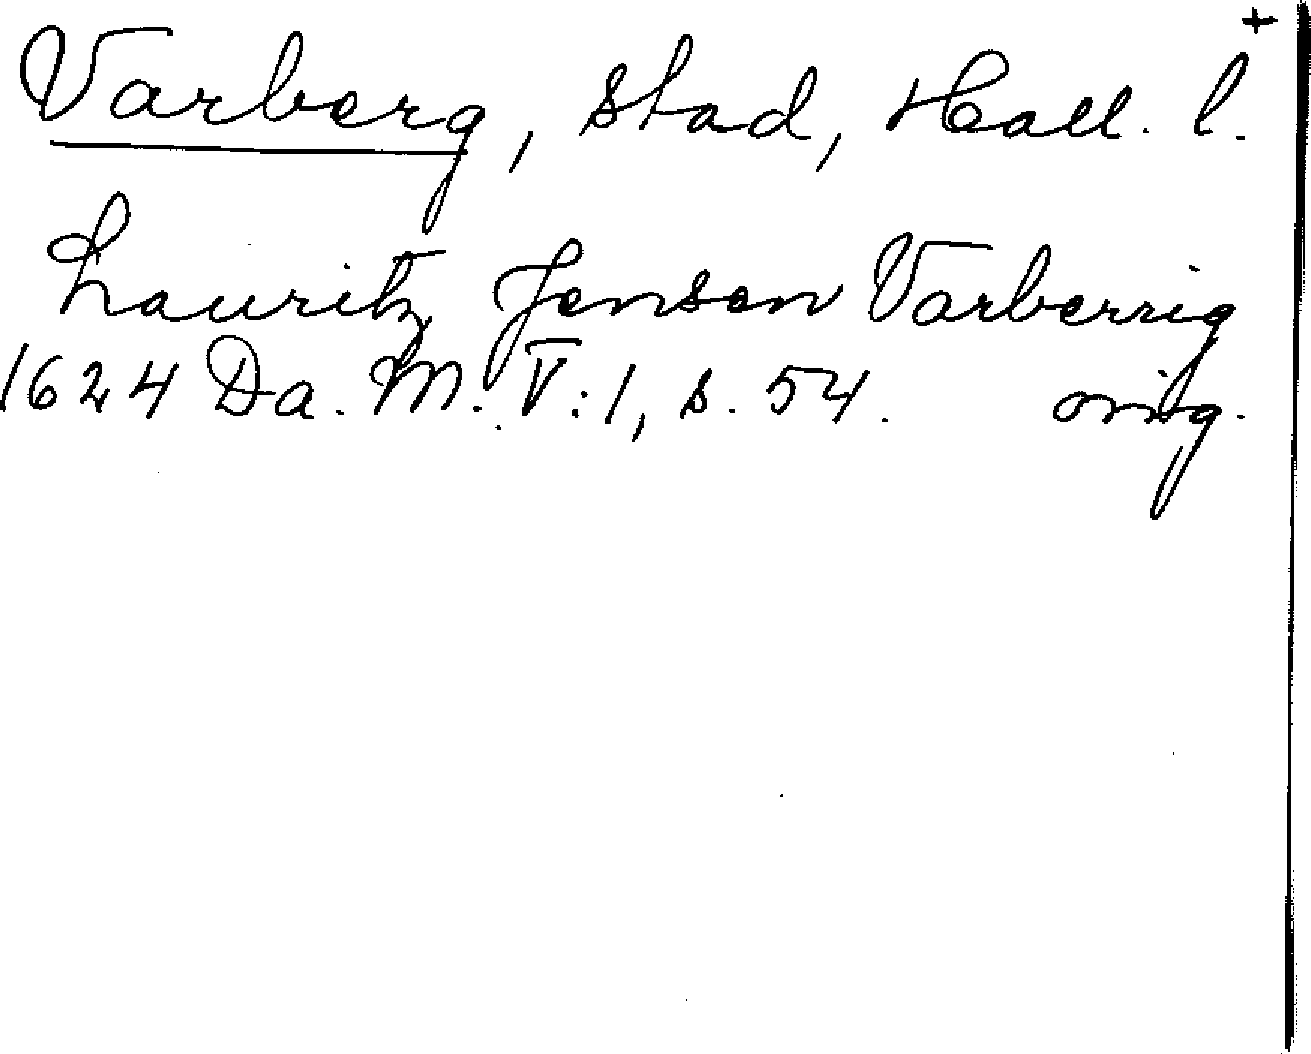 +
Varberg, stad, Hall. l.
Lauritz Jensen Varberrig
1624 Da. M. V:1, s. 54. orig.